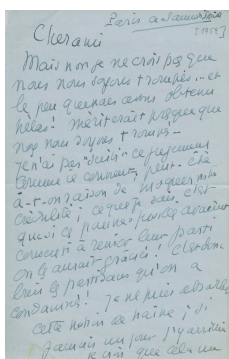 Paris
[195?]
Cher ami
Mais non je ne crois pas que
nous nous soyons trompés... et
le peu que nous avons obtenu
hélas! méritait presque que
nous nous soyons trompés -
Je n'ai pas "suivi" ce jugement
comme ce comment, peut-être
a-t-on raison de moquer
crédulité; ce que je sais c'est
que si ce pauvre avaient
consenti à renier leur parti
on les aurait graciés! C'est donc
bien les partisans qu'on a
condamnés! Je ne puis absolu
Cette notion de haine; si
jamais un jour j'y arrivais
je crois que cela